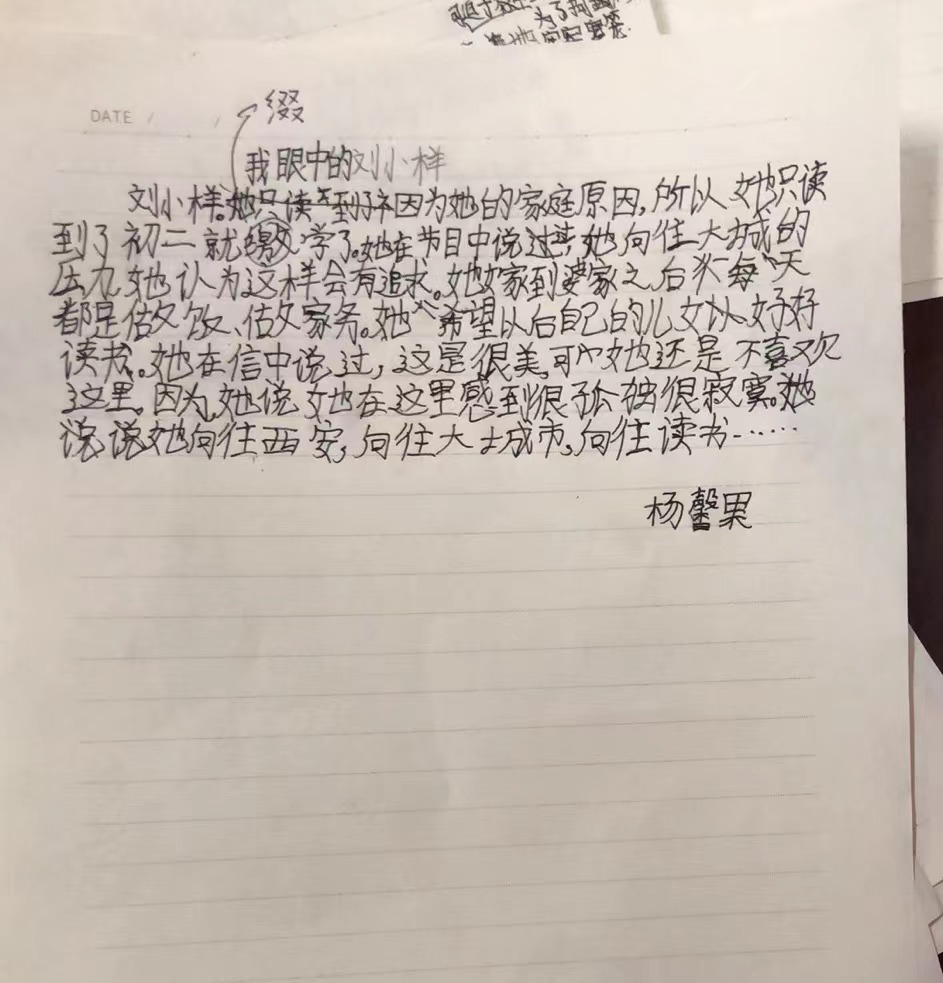 为了
DATE / /
缀
我眼中的刘小样
刘小样。她只读到了初因为她的家庭原因，所以她只读
到了初二就学了。她在节目中说过她向往大城的
压力，她认为这样会有追求。她嫁家到婆家之后"每"天
都是做饭、做家务。她"希望以后自己的儿女以好好
读书。她在信中说过，这是很美，可她还是不喜欢
这里。因为，她说她在这里感到很孤独很寂寞。她
说说她向往西安，向往大城市，向往读书……
杨馨果